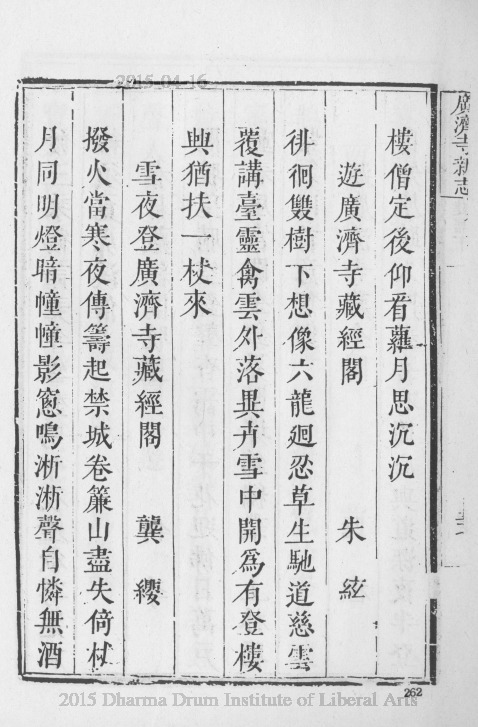 2015-04-16
廣濟寺新志
樓僧定後仰看蘿月思沉沉
遊廣濟寺藏經閣 朱絃
徘徊雙樹下想像六龍迴忍草生馳道慈雲
覆講臺靈禽雲外落異卉雪中開爲有登樓
興猶扶一杖來
雪夜登廣濟寺藏經閣 龔纓
撥火當寒夜傳籌起禁城卷簾山盡失倚杖
月同明燈暗幢幢影窻鳴淅淅聲自憐無酒
262
2015 Dharma Drum Institute of Liberal Arts